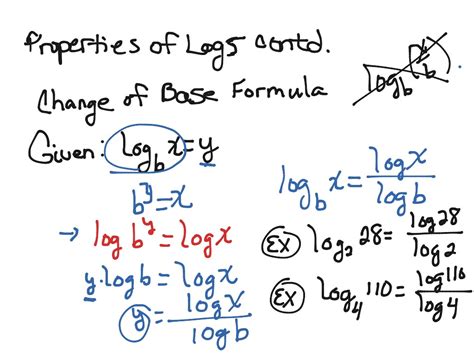 Properties of Logs contd.
Change of Base Formula
Given: log_b x = y
b^y = x
→ log b^y = log x
y · log b = log x
y = log x / log b
log_b x = log x / log b
EX log_2 28 = log 28 / log 2
EX log_4 110 = log 110 / log 4